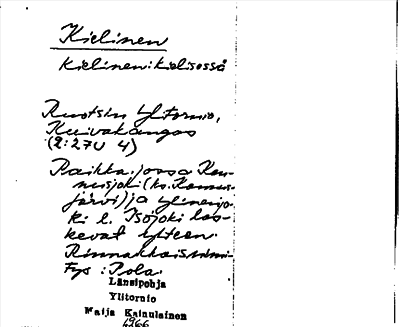 Kielinen
Kielinen : kielisessä
Ruotsin Ylitornio,
Kuivakangas
(2:27U 4)
Paikka, jossa Kom-
musjoki (ks. Kommus-
järvi) ja ylinenjo-
ki l. Isojoki las-
kevat yhteen.
Rinnakkaisnimi-
Fys : Pola.
Länsipohja
Ylitornio
Maija Kainulainen
1966